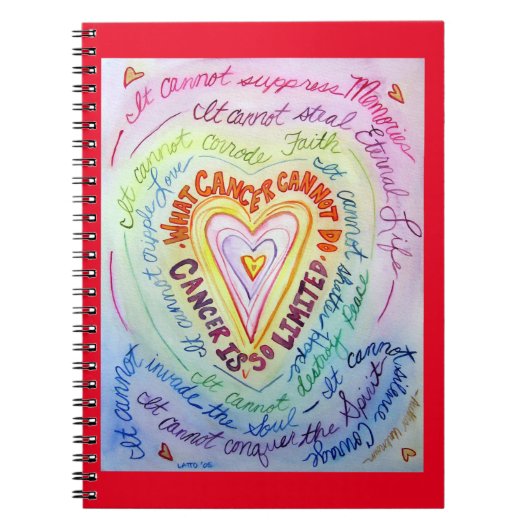 WHAT CANCER CANNOT DO
CANCER IS SO LIMITED
It cannot cripple Love
It cannot shatter Hope
It cannot corrode Faith
It cannot destroy Peace
It cannot suppress Memories
It cannot silence Courage
It cannot invade the Soul
It cannot steal Eternal Life
It cannot conquer the Spirit
-Author Unknown
LATTO '05